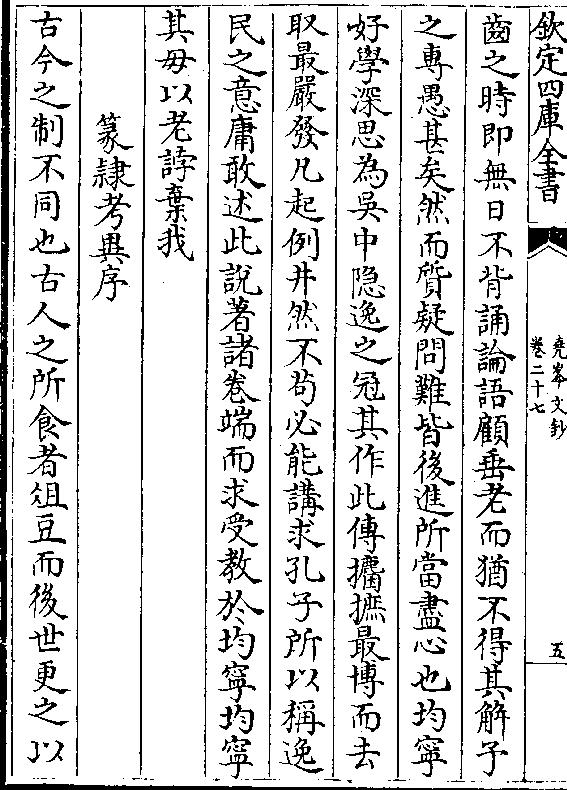 欽定四庫全書
堯峯文鈔
卷二十七
五
齒之時即無日不背誦論語顧垂老而猶不得其解予
之專愚甚矣然而質疑問難皆後進所當盡心也均寧
好學深思為吳中隐逸之冠其作此傳攟摭最博而去
取最嚴發凡起例井然不苟必能講求孔子所以稱逸
民之意庸敢述此說著諸卷端而求受教於均寧均寧
其毋以老誖棄我
篆隸考異序
古今之制不同也古人之所食者俎豆而後世更之以